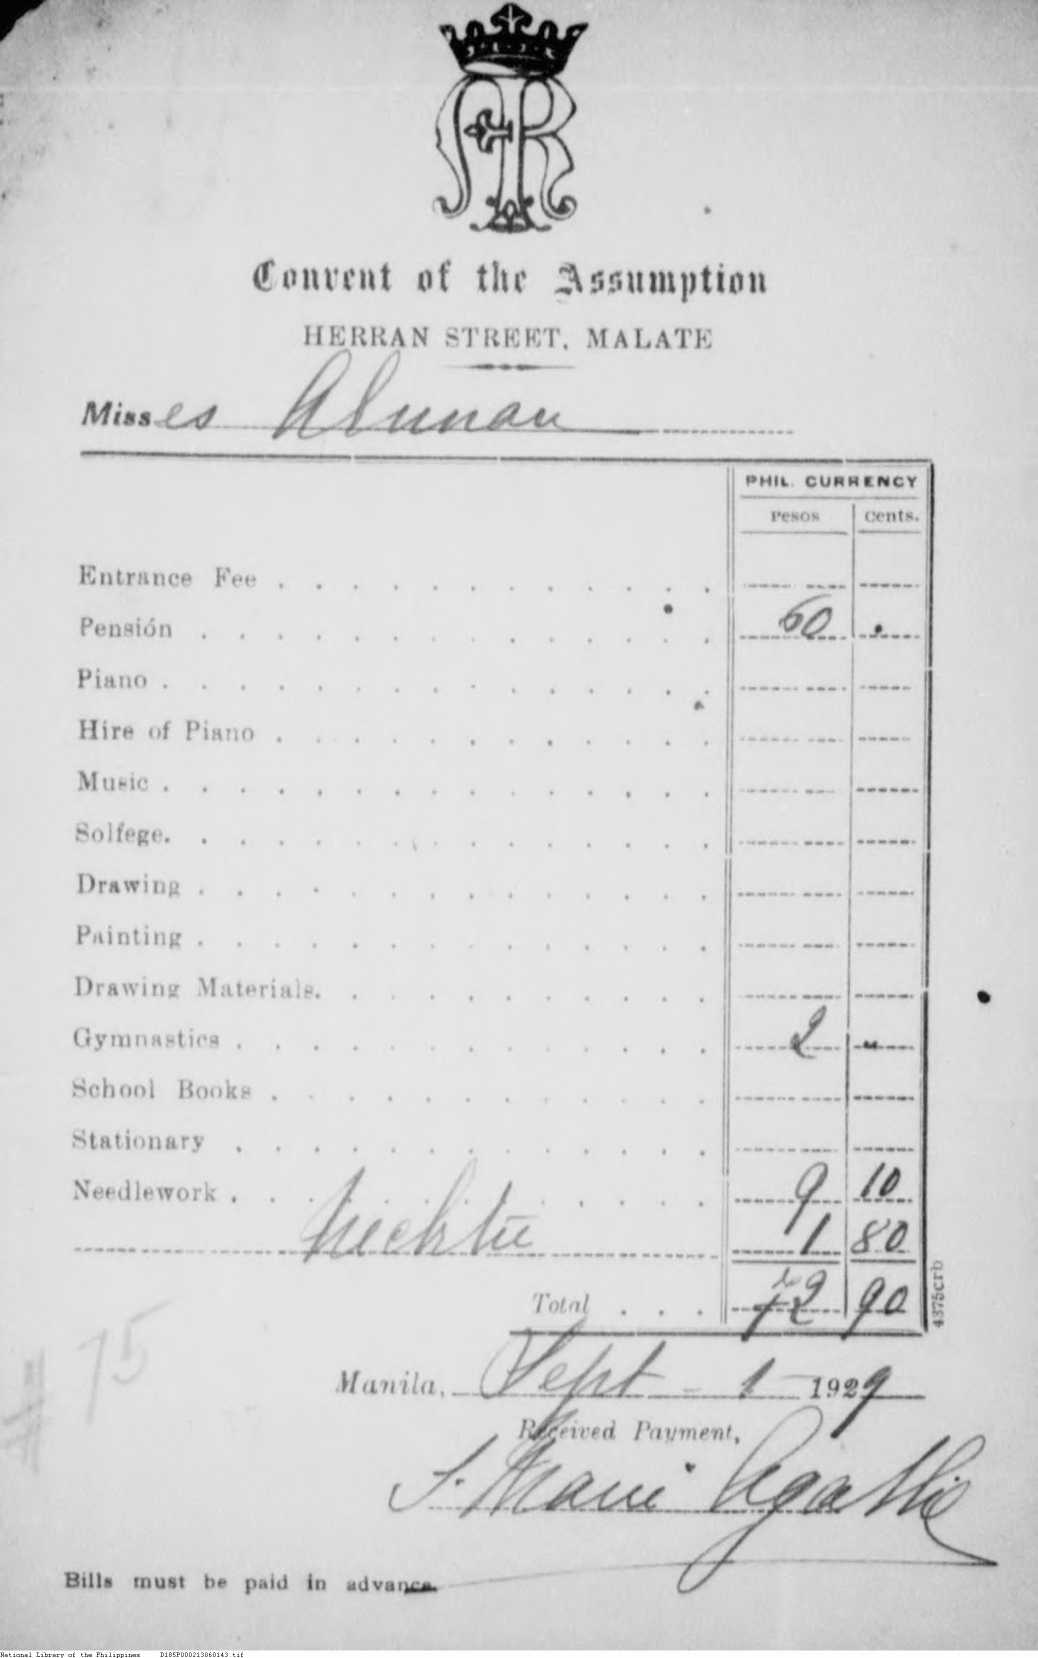 AR
Convent of the Assumption
HERRAN STREET, MALATE
Misses Alunan
PHIL. CURRENCY
Pesos Cents.
Entrance Fee
Pensión 60 .
Piano
Hire of Piano
Music
Solfege.
Drawing
Painting
Drawing Materials.
Gymnastics 2 "
School Books
Stationary
Needlework 9 10
Necktie 1 80
Total 72 90
4375crb
# 75
Manila, Sept - 1 - 1929
Received Payment,
S. Marie Agathe
Bills must be paid in advance.
National Library of the Philippines D185P000213060143.tif